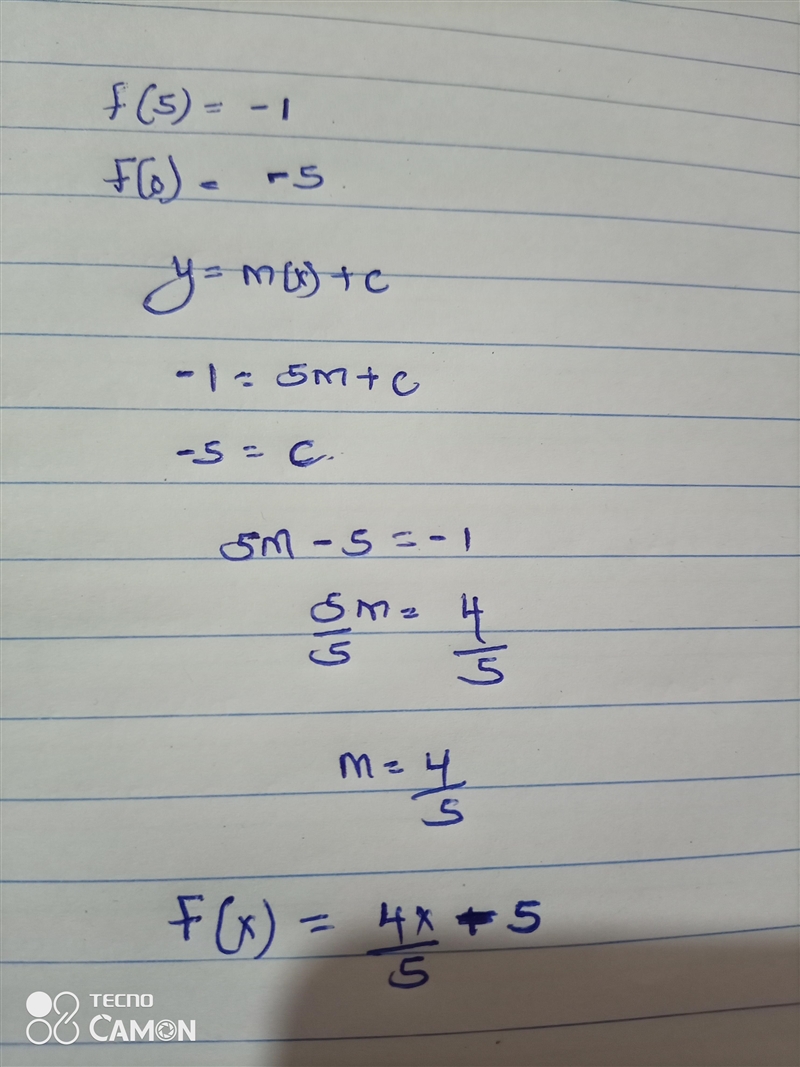 f(5) = -1
F(0) = -5
y = m(x) + c
-1 = 5m + c
-5 = c.
5m - 5 = -1
5m/5 = 4/5
m = 4/5
F(x) = 4x/5 - 5
TECNO
CAMON